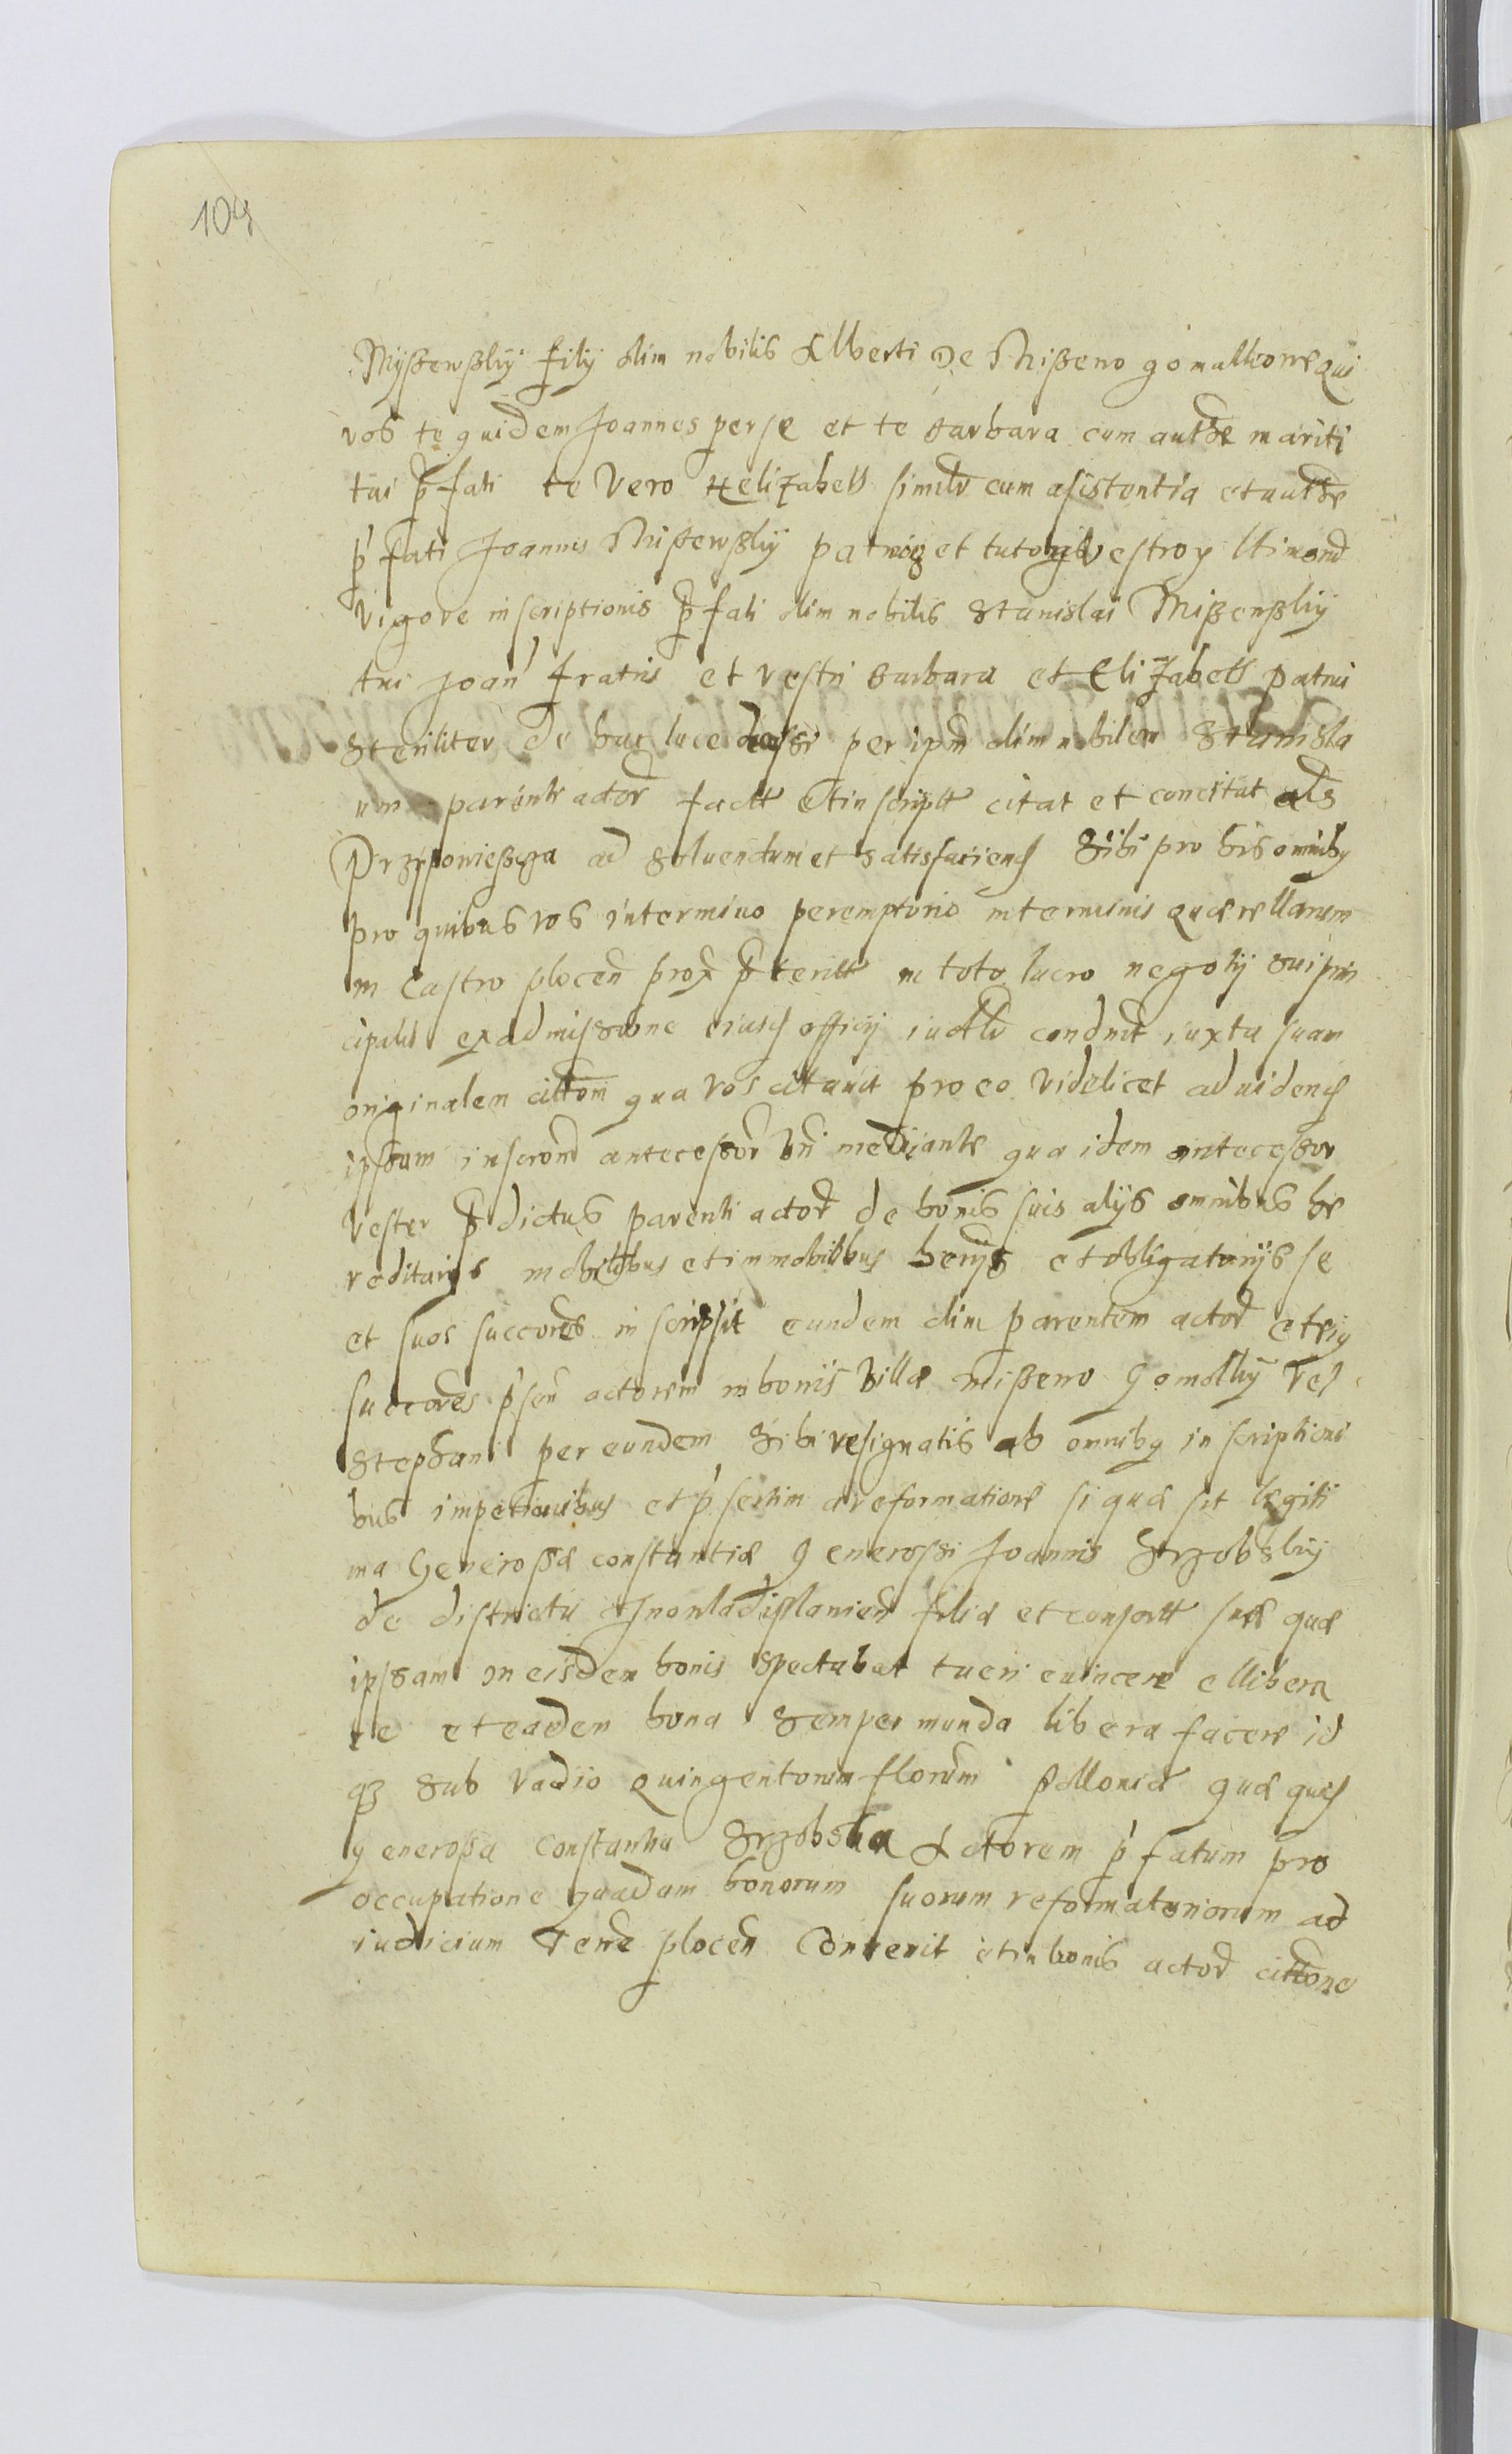 104
Myszewszky filÿ olim nobilis Alberti De Miszewo gomalkowe qui
vos te quidem Joannes per se et te Barbara cum authte mariti
tui p̄fati te Vero Helizabeth similr cum asistentia et authte
p̄fati Joannis Miszewszky patrui et tutoris vestror
Vigore inscriptionis p̄fati olim nobilis Stanislai Miszewszky
tui Joan fratris et vestri Barbara et Elizabeth patrui
Steriliter de hac luce decessi per ipm olim nobilem Stanisla
um parente actor factt et inscriptt citat et concitat als
Przÿpowieszcza ad Soluendum et Satisfaciend Sibi pro his omnibq
pro quibus vos in termino peremptorio in terminis quærellarum
in Castro plocen prox p̄teritt in toto lucro negotÿ sui prin
cipalis ex admissione eiusd officÿ iudtr condmt iuxta suam
originalem cittom qua vos citauit pro eo videlicet ad uidend
ipssum inscrond antecessor vri mediante qua idem antecessor
Vester p̄dictus parenti actor de bonis suis alÿs omnibus he
reditarÿs mobilibus et immobilibus et obligatorÿs se
et suos succores inscripsit eundem olim parentem actor et eiq
succores p̄sen actorem in bonis Villæ Miszewo Gomolky Vel
Stephani per eundem Sibi resignatis ab omnibq inscriptioni
bus impetionibus et p̄sertim a reformatione si quæ sit legiti
ma Generossæ constantiæ Generossi Joannis Srzobszky
de districtu Jnowladislauien filiæ et consortt suæ quæ
ipssam in eisdem bonis spectabat tueri euincere et libera
re et eadem bona Semper munda libera facere id
qz Sub Vadio quingentorum florum pollonica quæ quid
generossa Constantia Srzobska Actorem p̄fatum pro
occupatione quadam bonorum suorum reformatoriorum ad
iudicium Terre plocen Conuenit et in bonis actor cittone